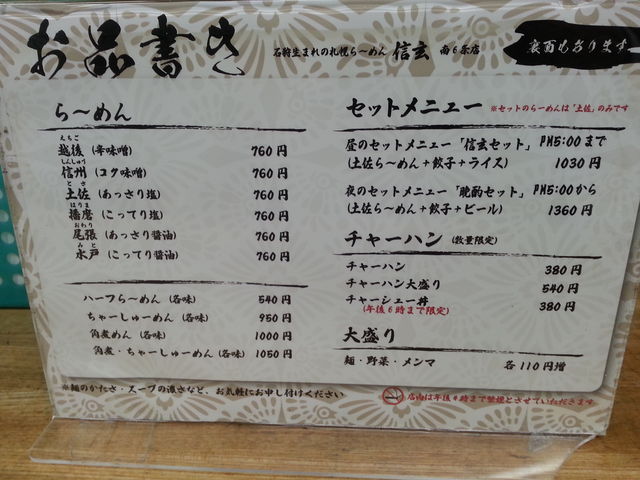 お品書き
石狩生まれの札幌ら〜めん 信玄 南6条店
裏面もあります
ら〜めん
えちご
越後 (辛味噌) 760円
しんしゅう
信州 (コク味噌) 760円
とさ
土佐 (あっさり塩) 760円
はりま
播磨 (こってり塩) 760円
おわり
尾張 (あっさり醤油) 760円
みと
水戸 (こってり醤油) 760円
ハーフら〜めん (各味) 540円
ちゃーしゅーめん (各味) 950円
角煮めん (各味) 1000円
角煮・ちゃーしゅーめん (各味) 1050円
※麺のかたさ・スープの濃さなど、お気軽にお申し付けください
セットメニュー ※セットのらーめんは「土佐」のみです
昼のセットメニュー「信玄セット」PM5:00まで
(土佐ら〜めん+餃子+ライス) 1030円
夜のセットメニュー「晩酌セット」PM5:00から
(土佐ら〜めん+餃子+ビール) 1360円
チャーハン (数量限定)
チャーハン 380円
チャーハン大盛り 540円
チャーシュー丼 380円
(午後6時まで限定)
大盛り
麺・野菜・メンマ 各110円増
店内は午後9時まで禁煙とさせていただきます